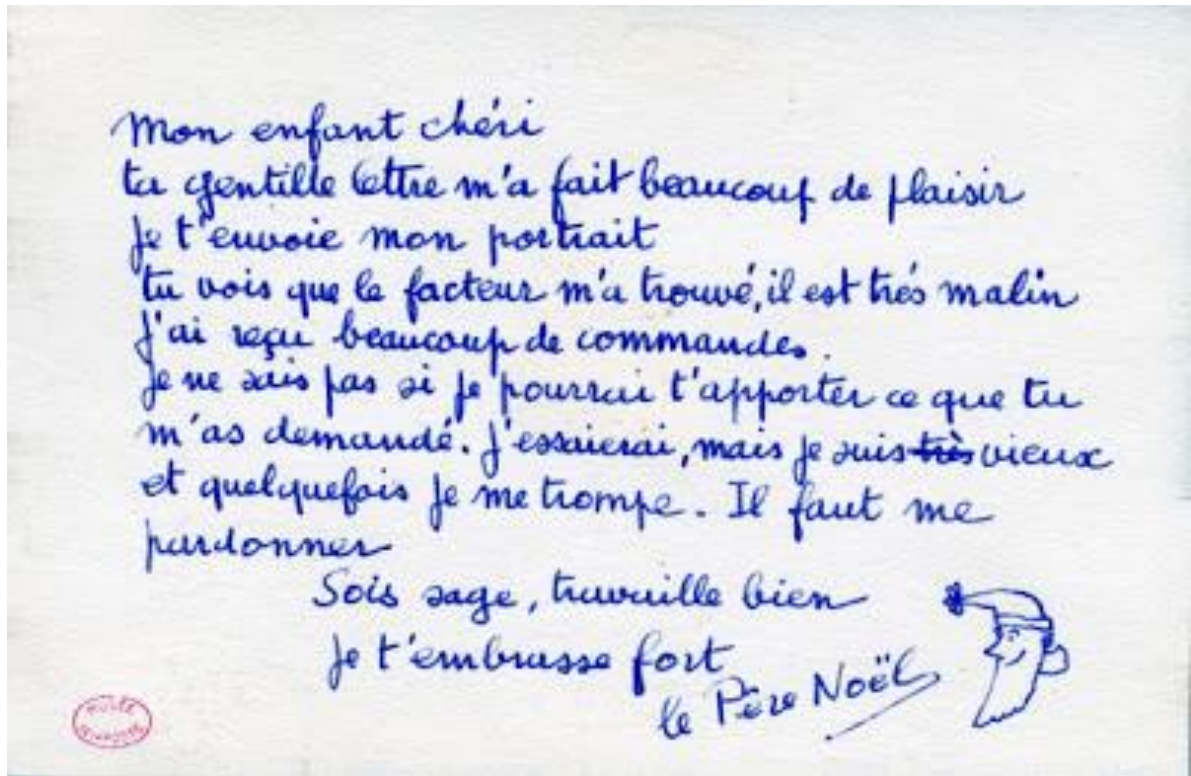 Mon enfant chéri
ta gentille lettre m'a fait beaucoup de plaisir
Je t'envoie mon portrait
tu vois que le facteur m'a trouvé, il est trés malin
J'ai reçu beaucoup de commandes.
Je ne sais pas si je pourrai t'apporter ce que tu
m'as demandé. J'essaierai, mais je suis très vieux
et quelquefois je me trompe. Il faut me
pardonner
Sois sage, travaille bien
Je t'embrasse fort
le Père Noël
MUSÉE